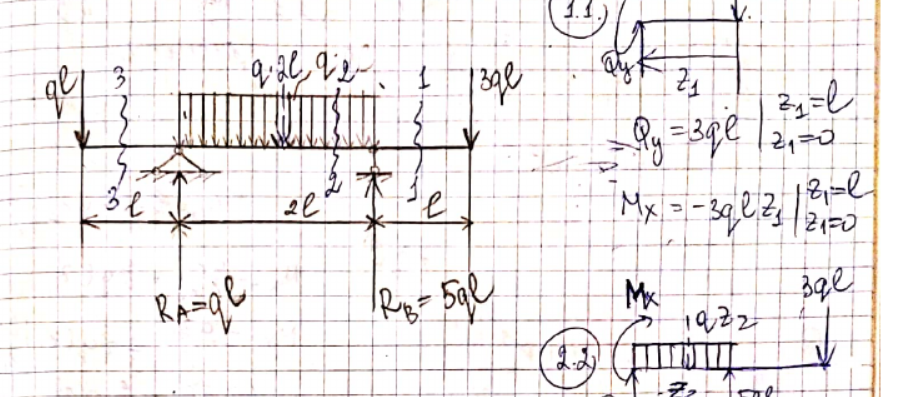 ql
3
q·2l
q
2
1
3ql
3
l
2l
2
1
l
R_A=ql
R_B=5ql
1.1.
Qy
z₁
Qy=3ql | z₁=l
z₁=0
Mx=-3qlz₁ | z₁=l
z₁=0
Mx
qz₂
3ql
2.2
z₂
5ql